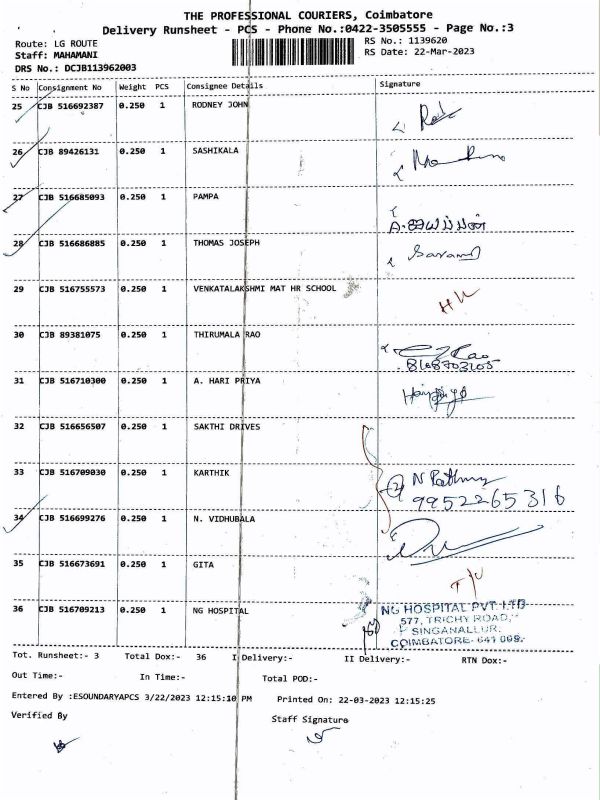 THE PROFESSIONAL COURIERS, Coimbatore
Delivery Runsheet - PCS - Phone No.:0422-3505555 - Page No.:3
Route: LG ROUTE
RS No.: 1139620
Staff: MAHAMANI
RS Date: 22-Mar-2023
DRS No.: DCJB113962003
S No Consignment No Weight PCS Consignee Details Signature
25 CJB 516692387 0.250 1 RODNEY JOHN
26 CJB 89426131 0.250 1 SASHIKALA
27 CJB 516685093 0.250 1 PAMPA
28 CJB 516686885 0.250 1 THOMAS JOSEPH
29 CJB 516755573 0.250 1 VENKATALAKSHMI MAT HR SCHOOL
30 CJB 89381075 0.250 1 THIRUMALA RAO
Rao
8168703105
31 CJB 516710300 0.250 1 A. HARI PRIYA
32 CJB 516656507 0.250 1 SAKTHI DRIVES
33 CJB 516709030 0.250 1 KARTHIK
9952265316
34 CJB 516699276 0.250 1 N. VIDHUBALA
35 CJB 516673691 0.250 1 GITA
36 CJB 516709213 0.250 1 NG HOSPITAL
NG HOSPITAL PVT LTD
577, TRICHY ROAD,
SINGANALLUR,
COIMBATORE- 641 005.
Tot. Runsheet:- 3 Total Dox:- 36 I Delivery:- II Delivery:- RTN Dox:-
Out Time:- In Time:- Total POD:-
Entered By :ESOUNDARYAPCS 3/22/2023 12:15:10 PM Printed On: 22-03-2023 12:15:25
Verified By
Staff Signature